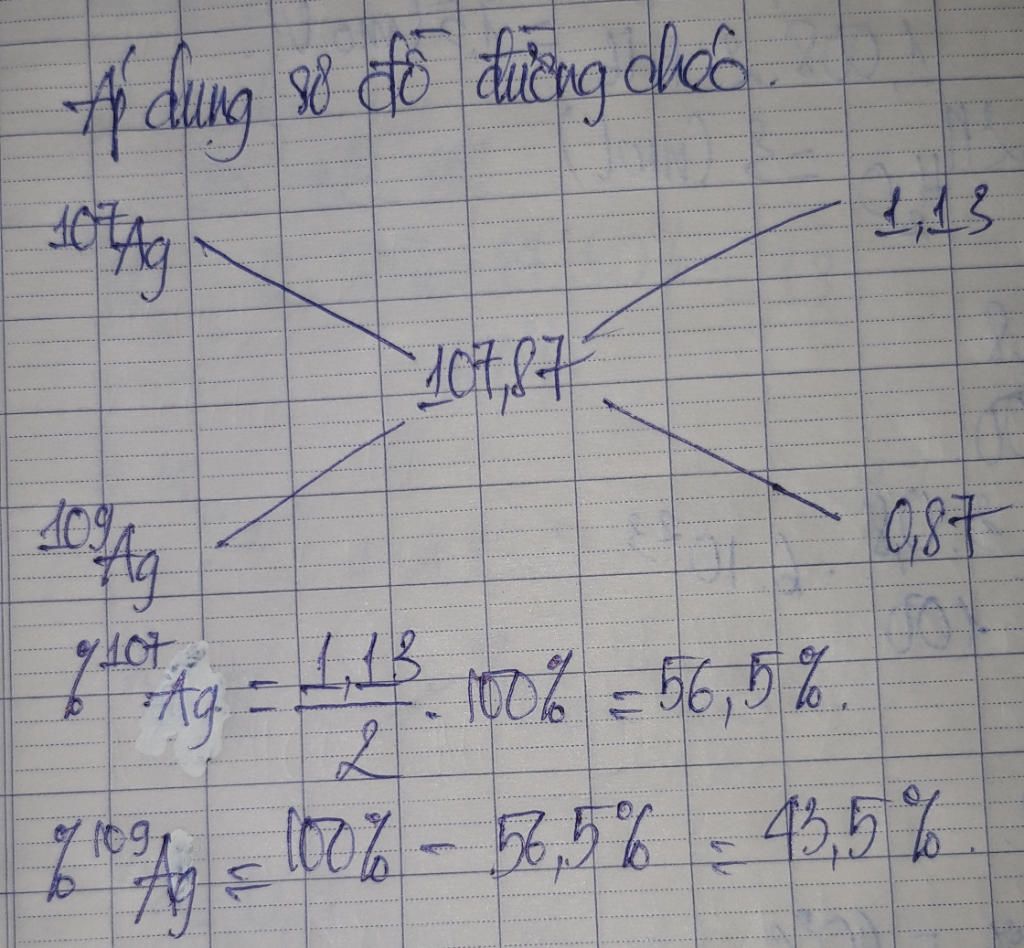 Áp dụng sơ đồ đường chéo.
¹⁰⁷Ag 1,13
107,87
¹⁰⁹Ag 0,87
%¹⁰⁷Ag = 1,13/2 . 100% = 56,5%.
%¹⁰⁹Ag = 100% - 56,5% = 43,5%.